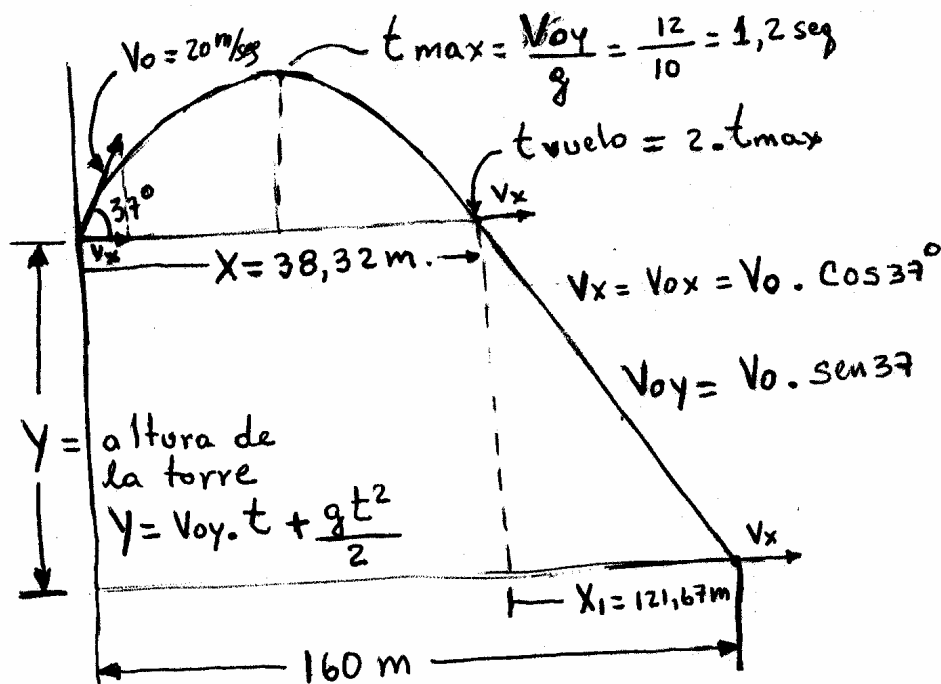 Vo = 20 m/seg
t max = Voy/g = 12/10 = 1,2 seg
t vuelo = 2 . t max
Vx
37°
Vx
X = 38,32 m.
Vx = Vox = Vo . Cos 37°
Voy = Vo . sen 37
Y = altura de
la torre
Y = Voy . t + gt²/2
Vx
X1 = 121,67 m
160 m